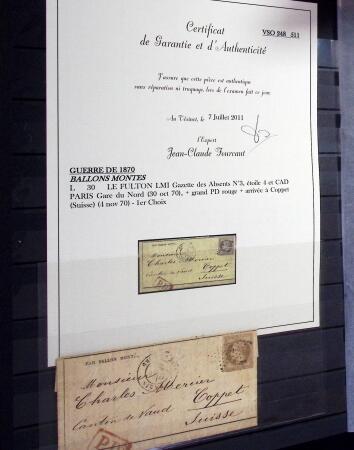 Certificat
de Garantie et d'Authenticité
VSO 248 511
J'assure que cette pièce est authentique
sans réparation ni truquage, lors de l'examen fait ce jour.
Au Vésinet, le 7 Juillet 2011
l'Expert
Jean-Claude Fourcaut
GUERRE DE 1870
BALLONS MONTES
L 30 LE FULTON LM1 Gazette des Absents N°3, étoile 4 et CAD
PARIS Gare du Nord (30 oct 70), + grand PD rouge + arrivée à Coppet
(Suisse) (4 nov 70) - 1er Choix
PAR BALLON MONTÉ
Monsieur
Charles Mercier
Canton de Vaud Coppet
Suisse
PD
PAR BALLON MONTÉ
Monsieur
Charles Mercier
Coppet
Canton de Vaud
Suisse
PD